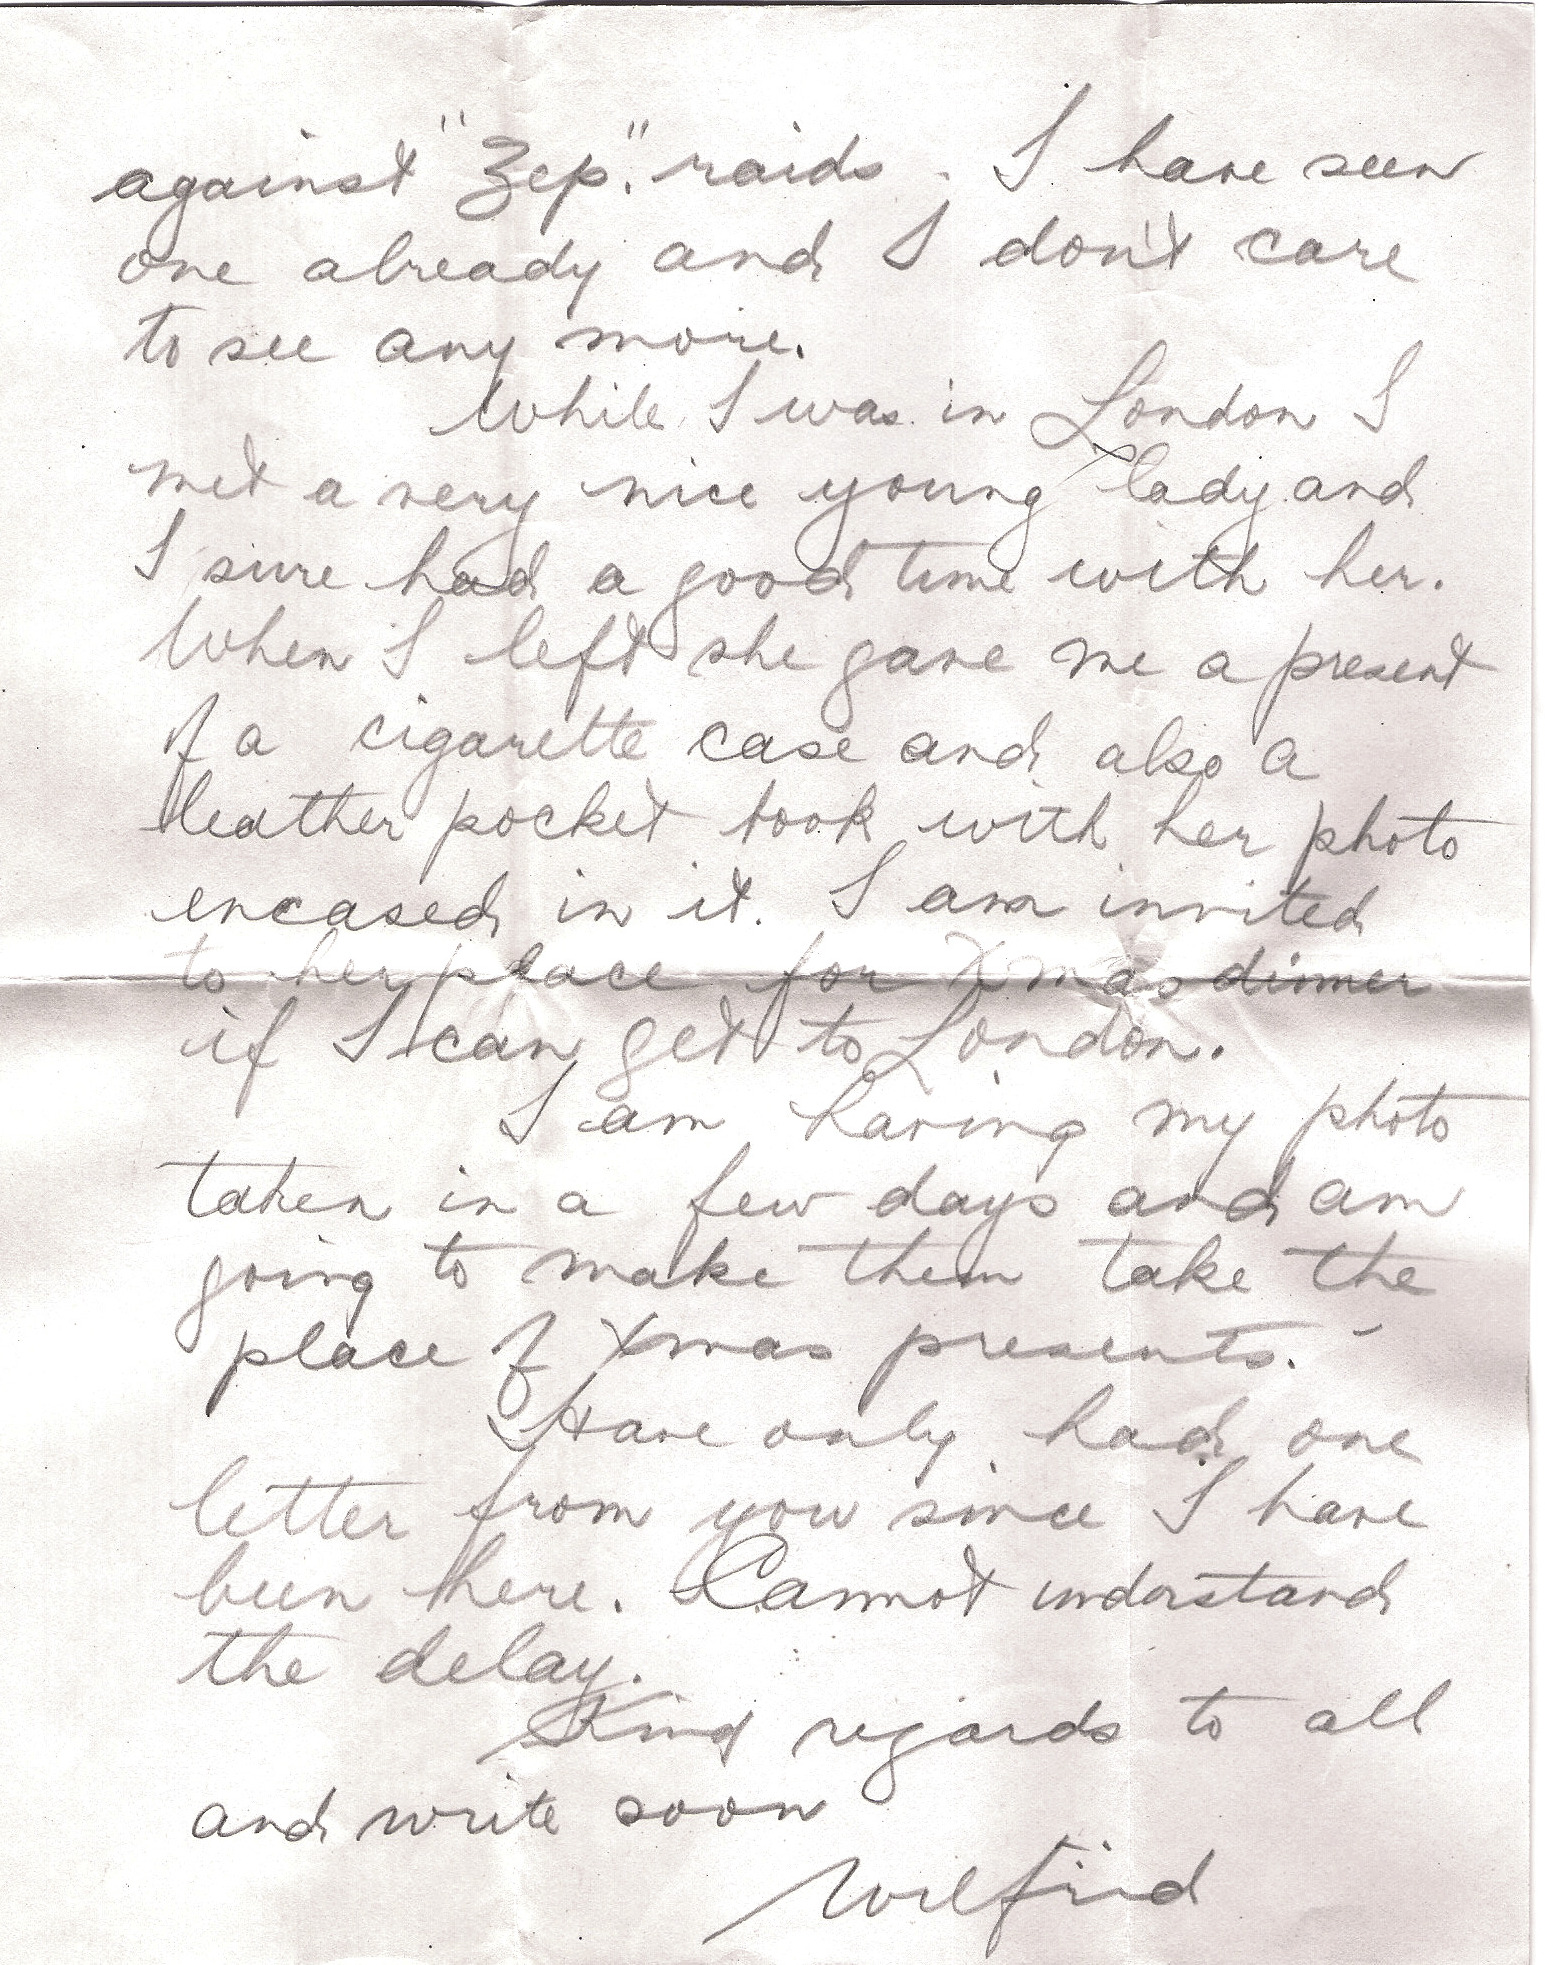 against "Zep." raids. I have seen
one already and I don't care
to see any more.
While I was in London I
met a very nice young lady and
I sure had a good time with her.
When I left she gave me a present
of a cigarette case and also a
leather pocket book with her photo
encased in it. I am invited
to her place for Xmas dinner
if I can get to London.
I am having my photo
taken in a few days and am
going to make them take the
place of Xmas presents.
Have only had one
letter from you since I have
been here. Cannot understand
the delay.
Kind regards to all
and write soon
Wilfrid